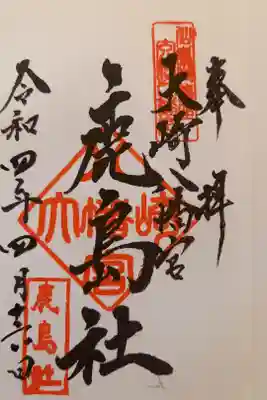 奉拝
大崎八幡宮
鹿島社
令和四年四月十六日
鹿島社